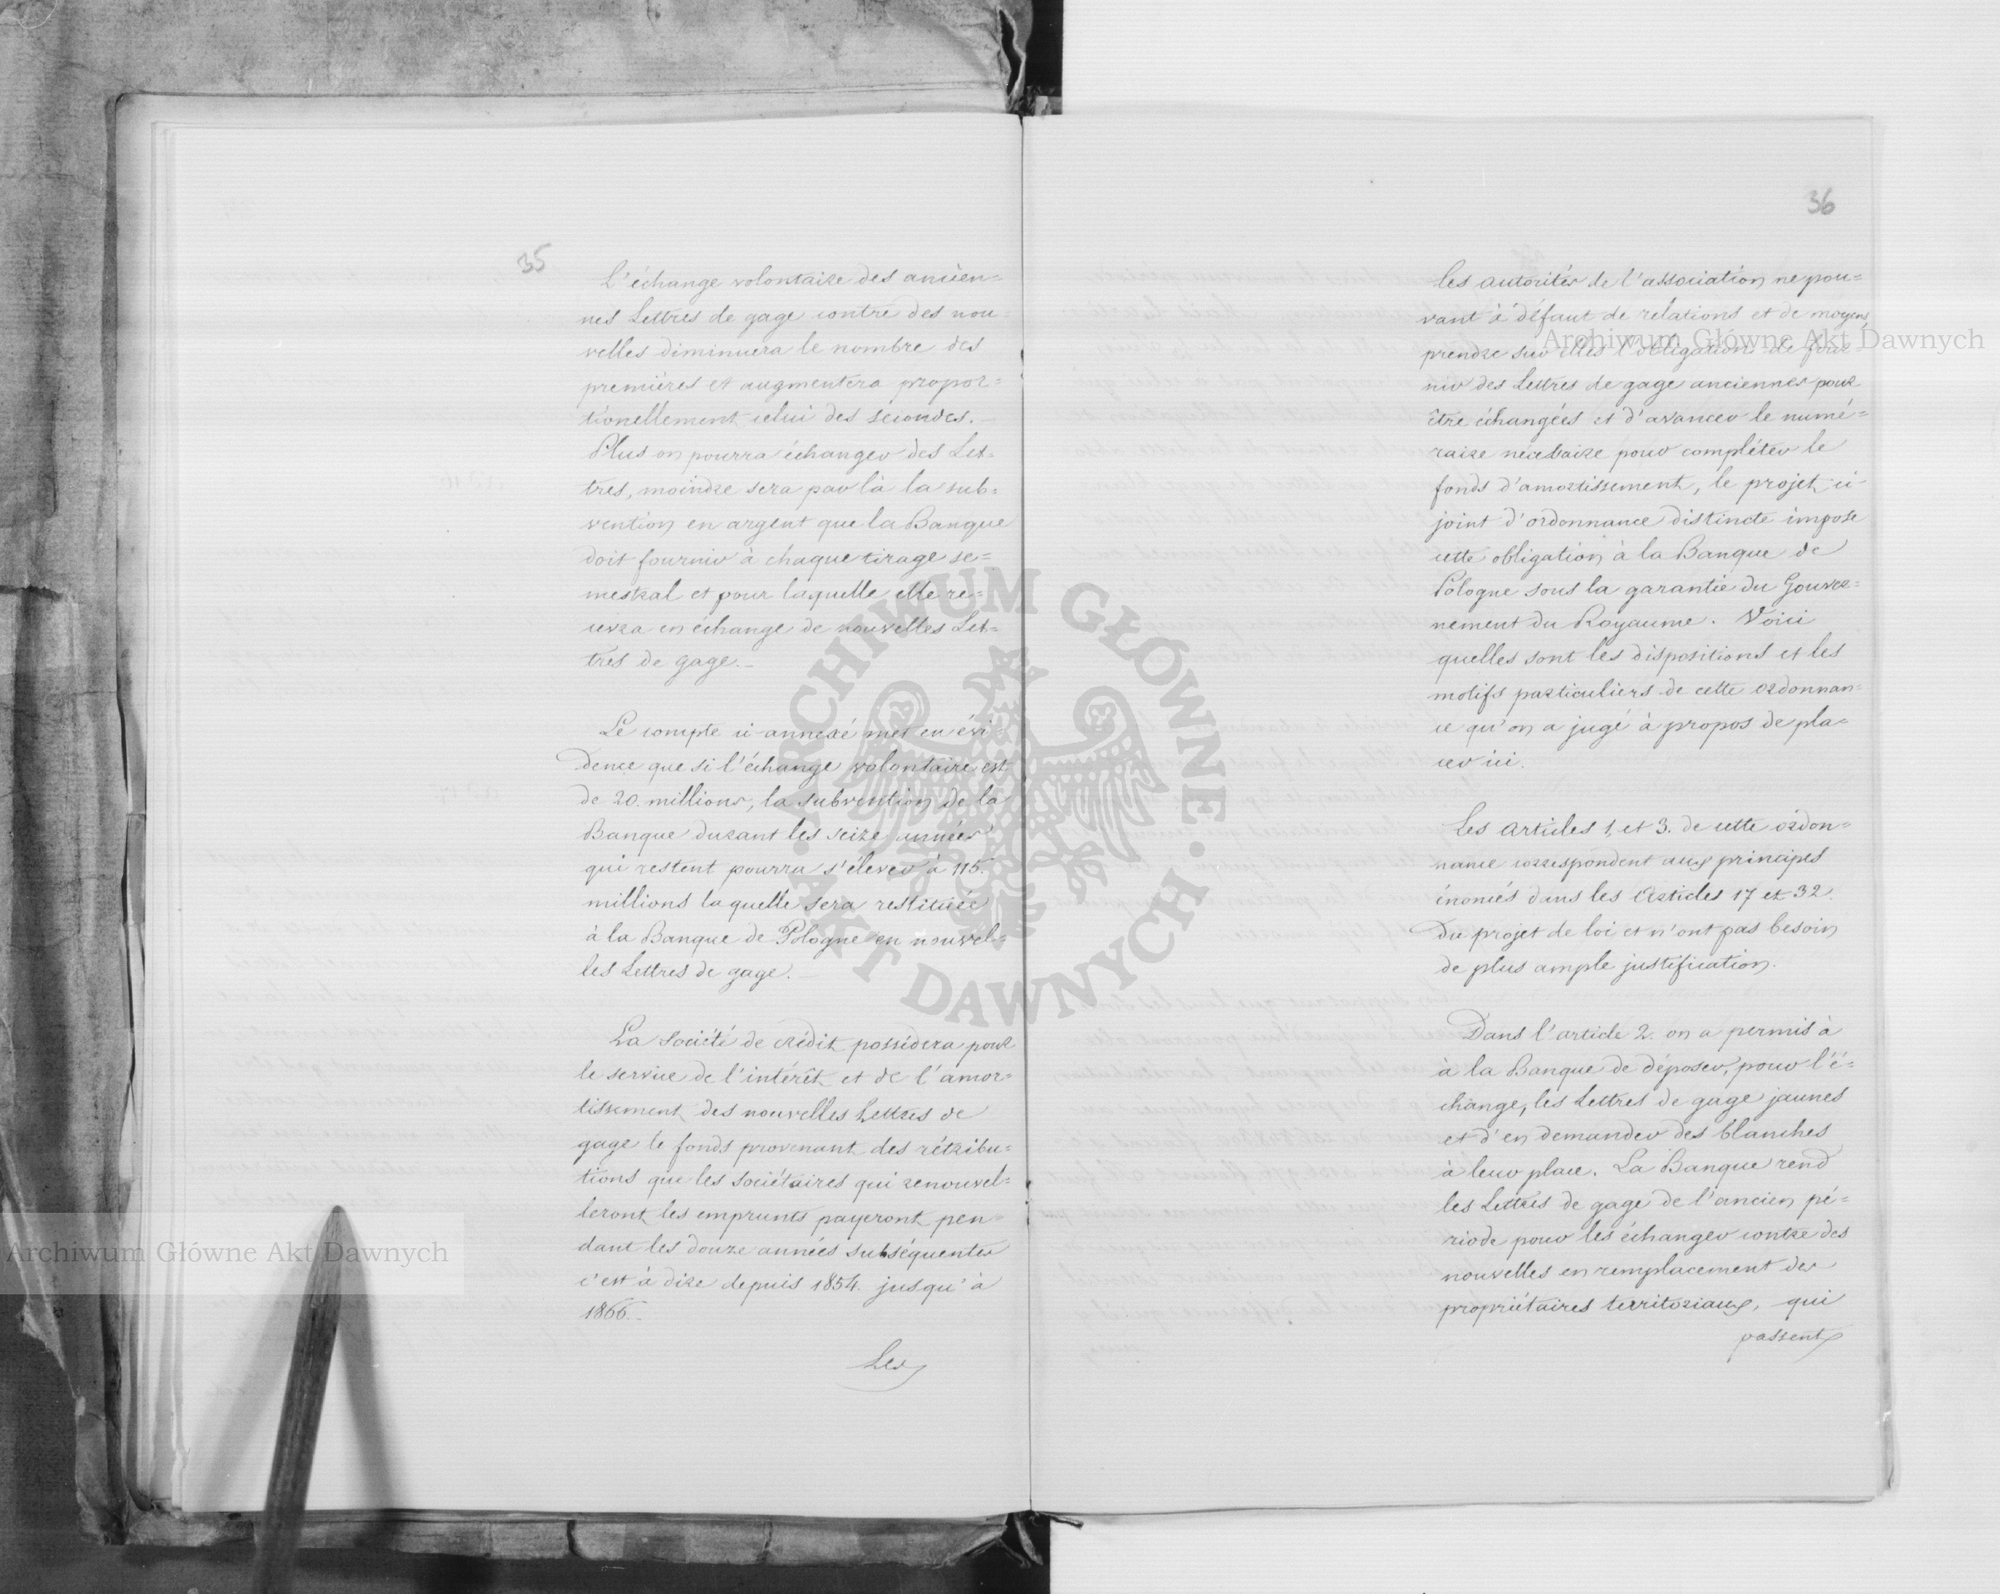 35
l'échange volontaire des ancien=
nes Lettres de gage contre des nou=
velles diminuera le nombre des
premières et augmentera propor=
tionellement celui des secondes. —
Plus on pourra échanger des Let=
tres, moindre sera par là la sub=
vention en argent que la Banque
doit fournir à chaque tirage se=
mestral et pour laquelle elle re=
cevra en échange de nouvelles Let=
tres de gage. —
Le compte ci-annexé met en évi=
dence que si l'échange volontaire est
de 20. millions, la subvention de la
Banque durant les seize années
qui restent pourra s'élever à 115.
millions laquelle sera restituée
à la Banque de Pologne en nouvel=
les Lettres de gage. —
La société de crédit possédera pour
le service de l'intérêt et de l'amor=
tissement des nouvelles Lettres de
gage le fonds provenant des rétribu=
tions que les sociétaires qui renouvel=
leront les emprunts payeront pen=
dant les douze années subséquentes
c'est à dire depuis 1854. jusqu'à
1866. —
Les
36
les autorités de l'association ne pou=
vant à défaut de relations et de moyens
prendre sur elles l'obligation de four=
nir des Lettres de gage anciennes pour
être échangées et d'avancer le numé=
raire nécessaire pour compléter le
fonds d'amortissement, le projet ci-
joint d'ordonnance distincte impose
cette obligation à la Banque de
Pologne sous la garantie du Gouver=
nement du Royaume. Voici
quelles sont les dispositions et les
motifs particuliers de cette ordonnan=
ce qu'on a jugé à propos de pla=
cer ici.
Les articles 1, et 3. de cette ordon=
nance correspondent aux principes
énoncés dans les Articles 17 et 32.
Du projet de loi et n'ont pas besoin
de plus ample justification.
Dans l'article 2. on a permis à
à la Banque de déposer, pour l'é=
change, les Lettres de gage jaunes
et d'en demander des blanches
à leur place. La Banque rend
les Lettres de gage de l'ancien pé=
riode pour les échanger contre des
nouvelles en remplacement des
propriétaires territoriaux, qui
passent
Archiwum Główne Akt Dawnych
Archiwum Główne Akt Dawnych
ARCHIWUM GŁÓWNE · AKT DAWNYCH ·